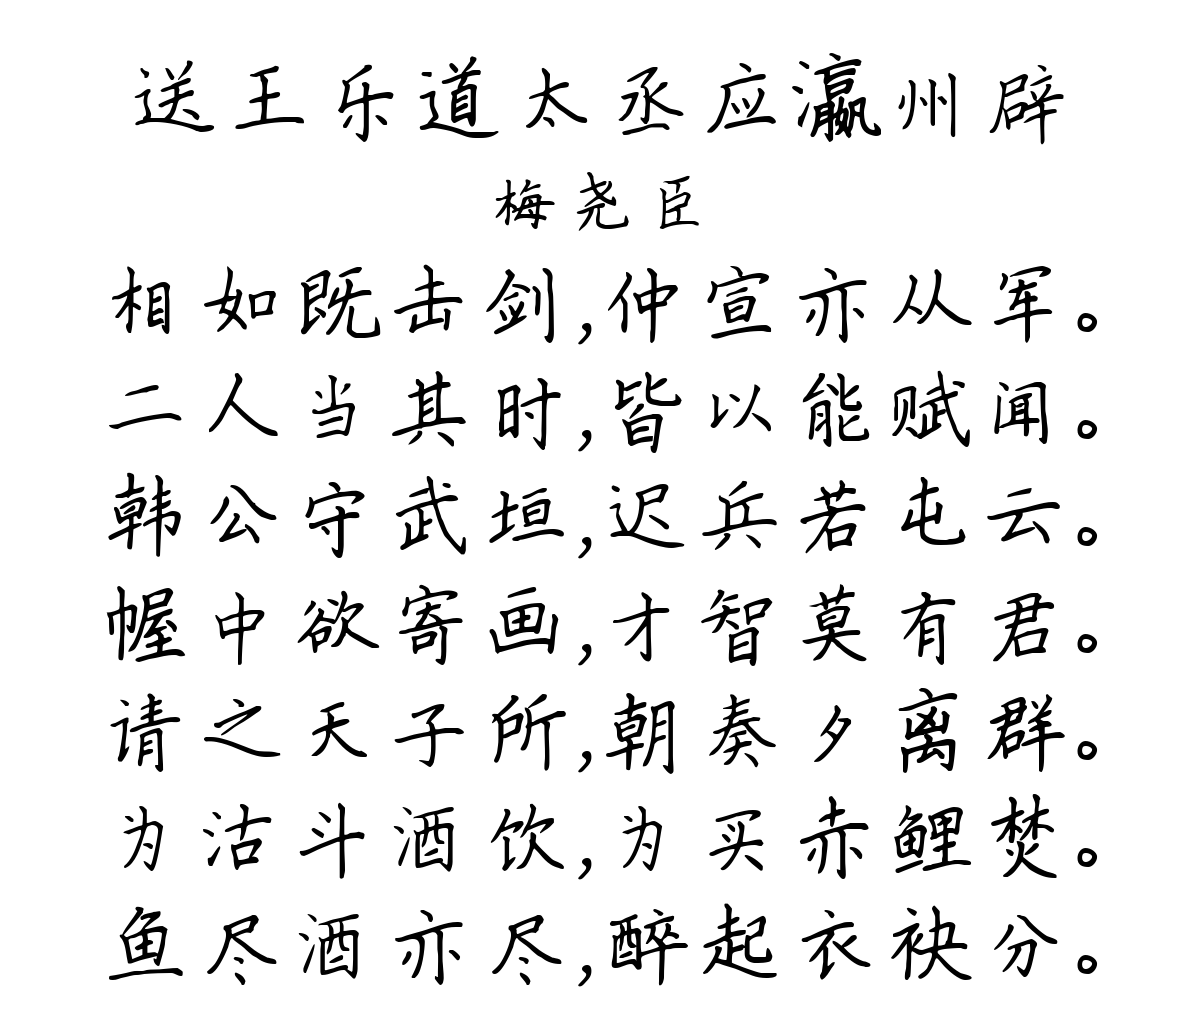 送王乐道太丞应瀛州辟
梅尧臣
相如既击剑,仲宣亦从军。
二人当其时,皆以能赋闻。
韩公守武垣,迟兵若屯云。
幄中欲寄画,才智莫有君。
请之天子所,朝奏夕离群。
为沽斗酒饮,为买赤鲤焚。
鱼尽酒亦尽,醉起衣袂分。